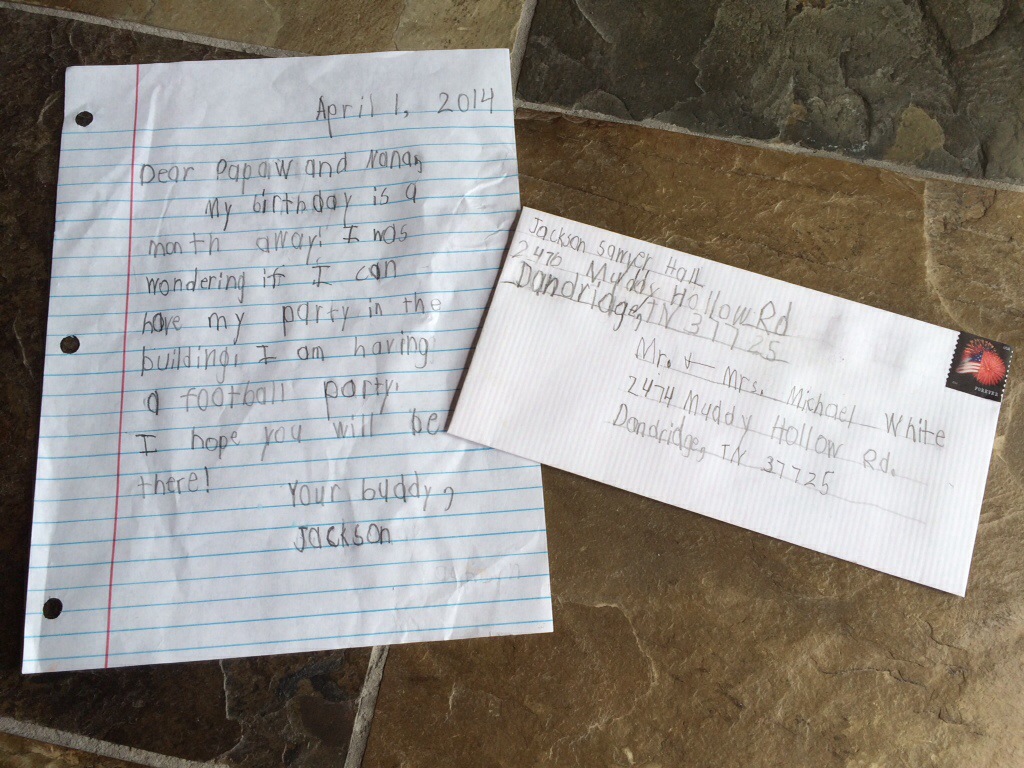 April 1, 2014
Dear Papaw and Nana,
My birthday is a
month away! I was
wondering if I can
have my party in the
building. I am having
a football party.
I hope you will be
there!
Your buddy,
Jackson
Jackson Sawyer Hall
2476 Muddy Hollow Rd
Dandridge, TN 37725
Mr. + Mrs. Michael White
2474 Muddy Hollow Rd.
Dandridge, TN 37725
FOREVER